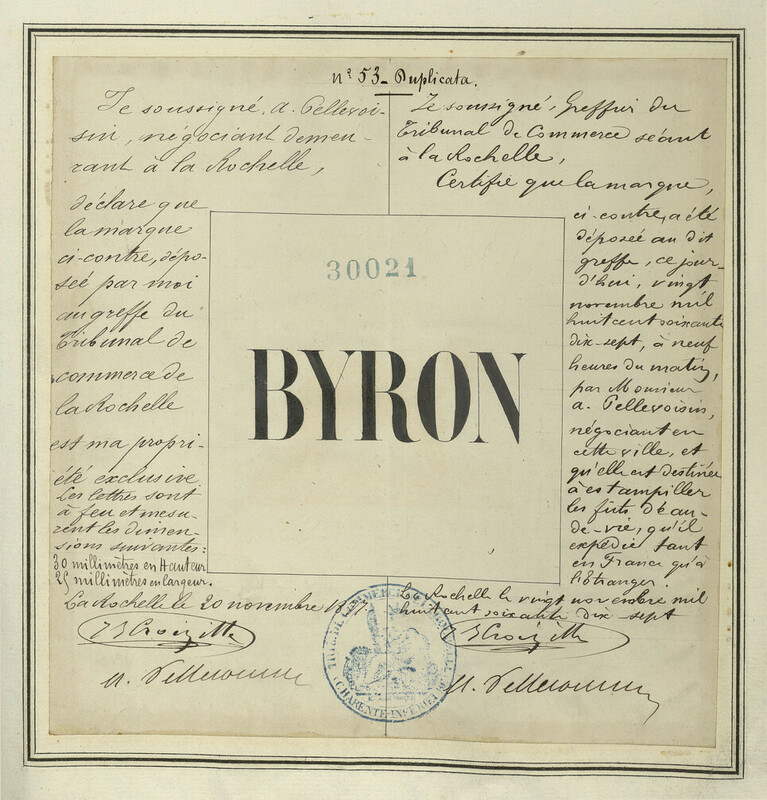 nº 53 - Duplicata.
Je soussigné, A. Pellevoi-
sin, négociant demeu-
rant à la Rochelle,
déclare que
la marque
ci-contre, dépo-
sée par moi
au greffe du
Tribunal de
commerce de
la Rochelle
est ma propri-
été exclusive.
Les lettres sont
à feu et mesu-
rent les dimen-
sions suivantes:
30 millimètres en Hauteur
25 millimètres en largeur.
La Rochelle le 20 novembre
A. Pellevoisin
30021
BYRON
Le soussigné, Greffier du
Tribunal de Commerce séant
à la Rochelle,
Certifie que la marque,
ci-contre, a été
déposée au dit
greffe, ce jour-
d'hui, vingt
novembre mil
huit cent soixante
dix-sept, à neuf
heures du matin,
par Monsieur
A. Pellevoisin,
négociant en
cette ville, et
qu'elle est destinée
à estampiller
les fûts d'eau-
de-vie, qu'il
expédie tant
en France qu'à
l'Etranger.
La Rochelle le vingt novembre mil
huit cent soixante dix-sept
A. Pellevoisin
CHARENTE-INFRE